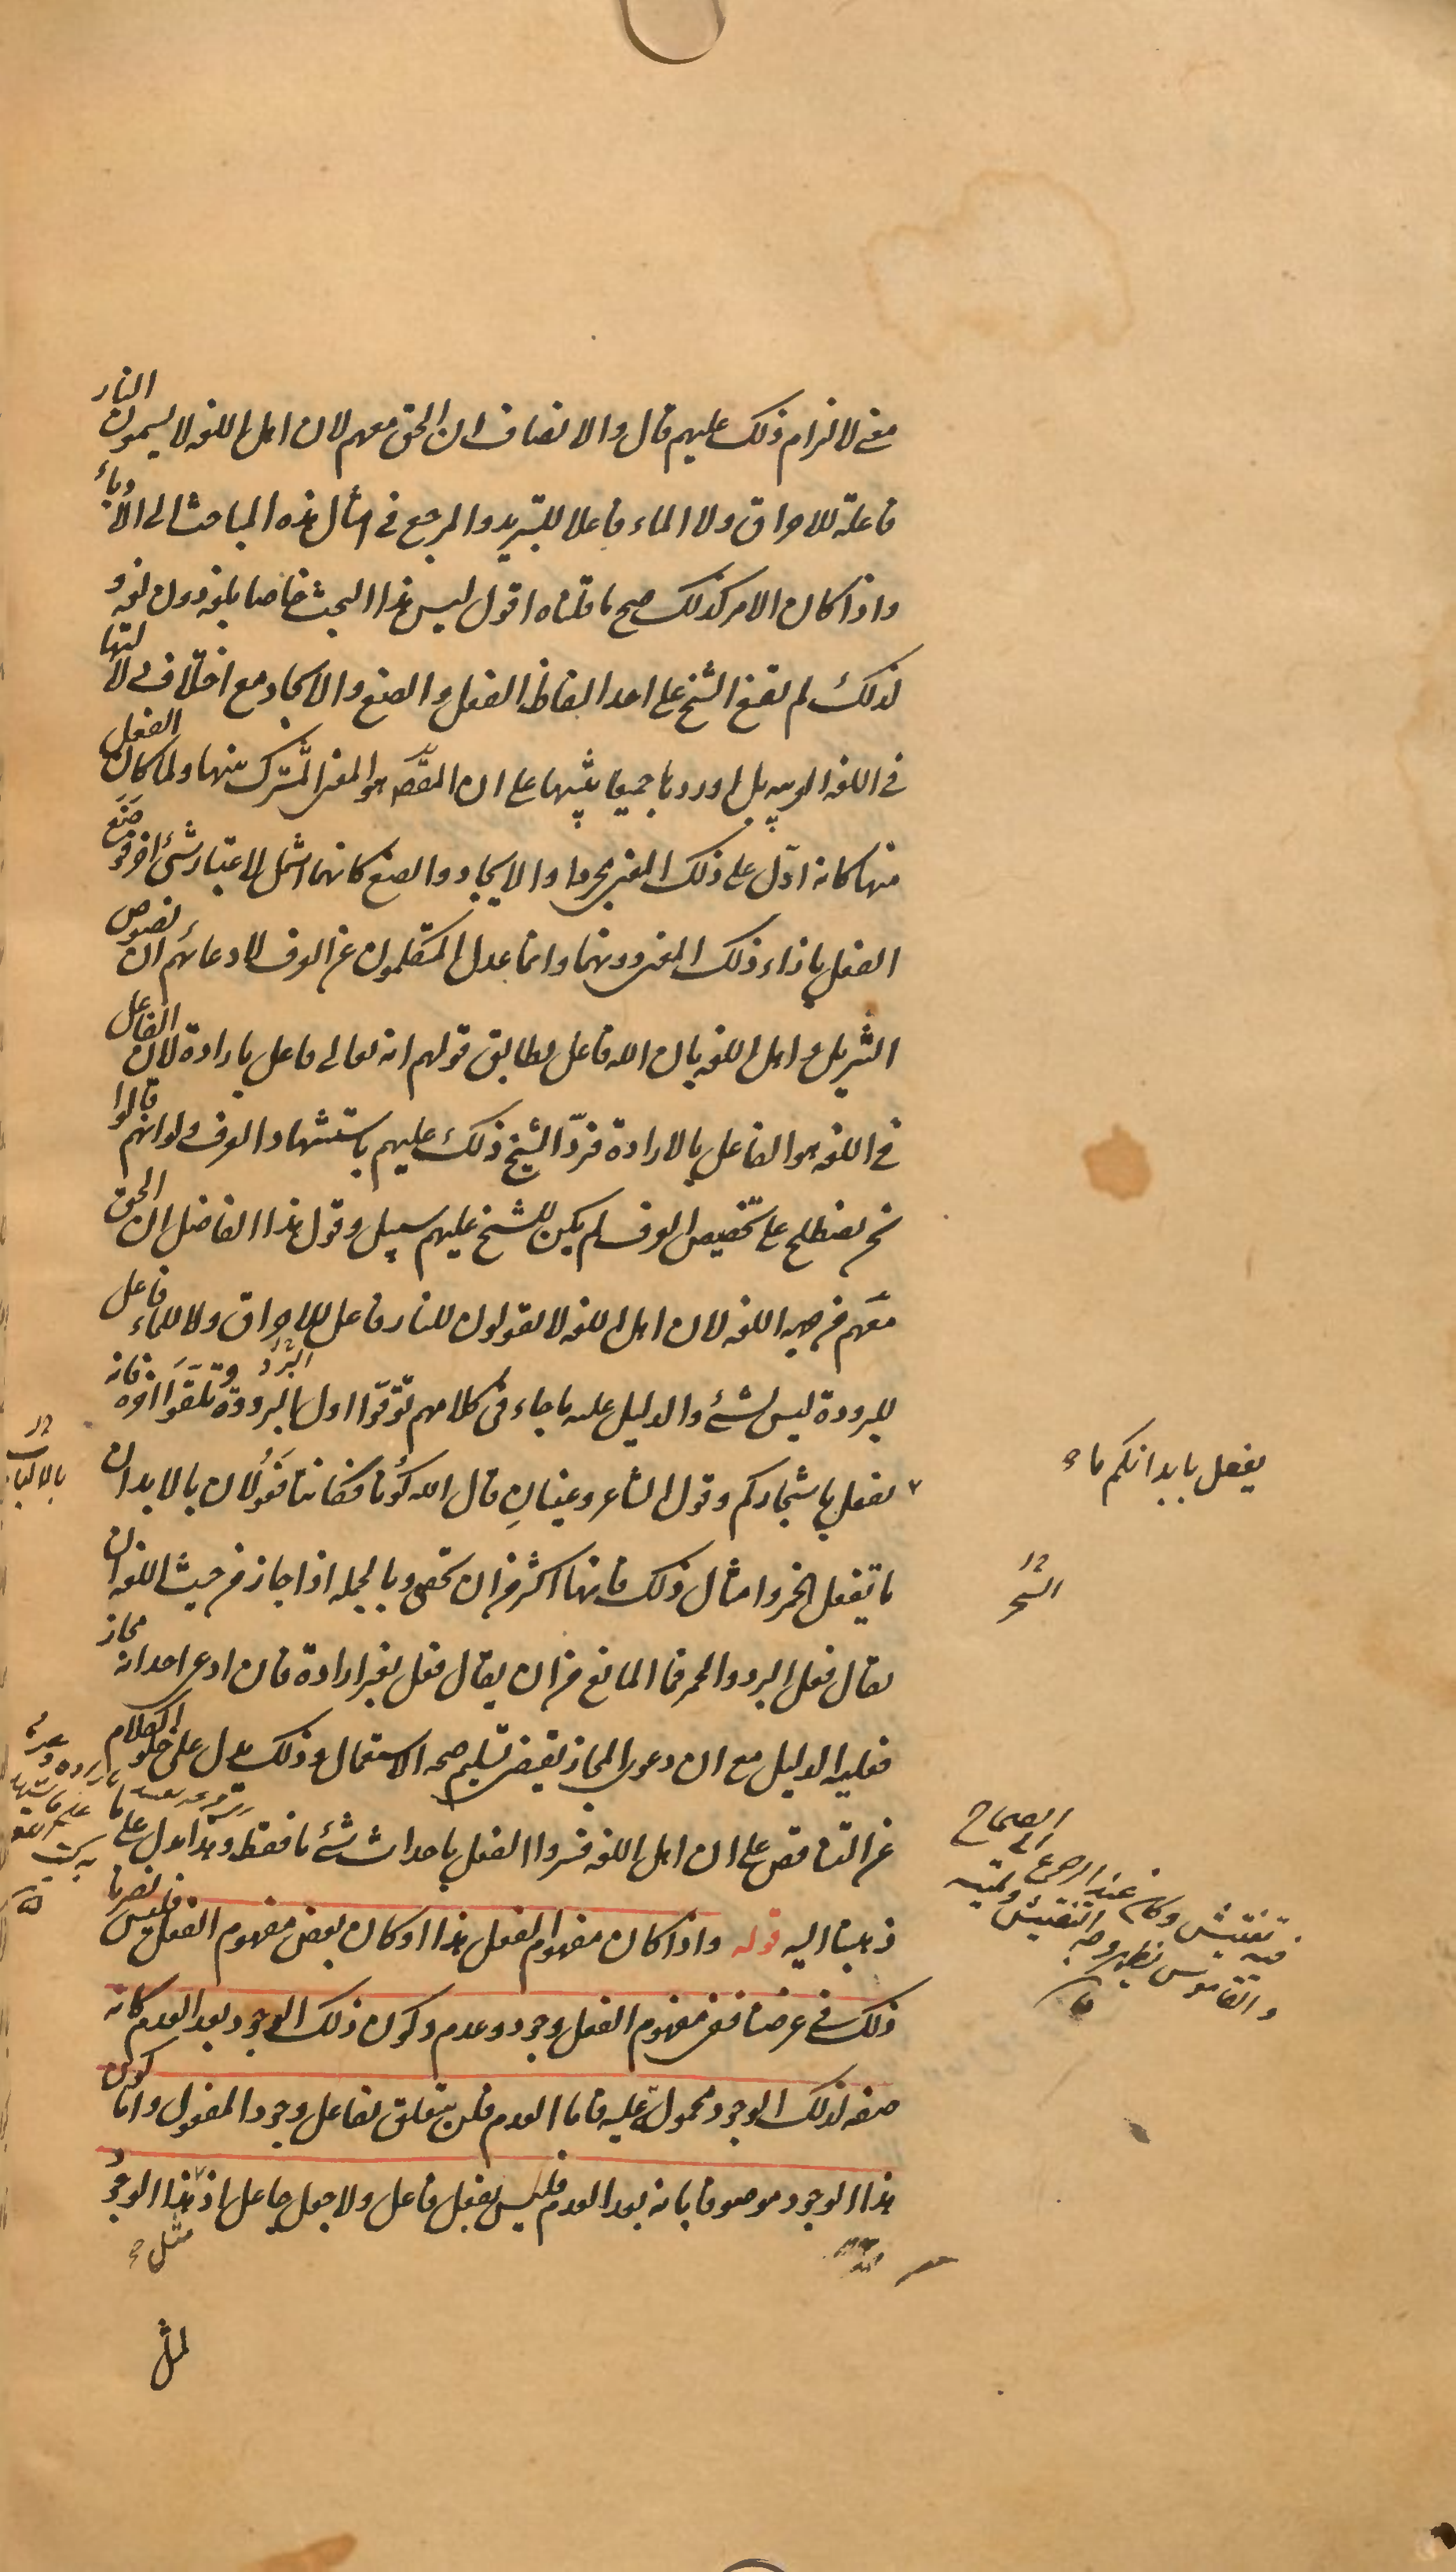 معنى لالزام ذلك عليهم قال والانصاف ان الحق معهم لان اهل اللغه لا يسمون النار
فاعلة للاحراق ولا الماء فاعلا للتبريد والمرجع فى امثال هذه المباحث الى الأدباء
واذا كان الامر كذلك صح ما قلناه اقول ليس هذا البحث خاصا بلغة دون لغة و
لذلك لم يقنع الشيخ على احد الفاظ الفعل والصنع والايجاد مع اختلاف دلالتها
فى اللغه العربيه بل اوردها جميعا تنبيها على ان المقصد هو المعنى المشترك بينها ولما كان الفعل
منها كانه ادلّ على ذلك المعنى مجردا والايجاد والصنع كانهما اشمل لاعتبار شئ اخر وضَعَ
الفعل بازاء ذلك المعنى دونهما وانما عدل المتكلمون عن العرف لادعائهم ان نصوص
التنزيل و اهل اللغه بان الله فاعل يطابق قولهم انه تعالى فاعل بارادة لان الفاعل
فى اللغه هو الفاعل بالارادة فردّ الشيخ ذلك عليهم باستشهاد العرف ولو انهم قالوا
نحن نصطلح على تخصيص العرف لم يكن للشيخ عليهم سبيل وقول هذا الفاضل ان الحق
معهم من جهه اللغه لان اهل اللغه لا يقولون للنار فاعل للاحراق ولا للماء فاعل
للبرودة ليس بشئ والدليل عليه ما جاء فى كلامهم توقّوا اول البرد وتلقّوا اخره فانه
يفعل باشجاركم وقول الشاعر وعينانِ قال الله كُونا فكانتا فَعُولان بالالباب
ما يفعل الخمر وامثال ذلك فانها اكثر من ان تحصى وبالجمله اذا جاز من حيث اللغه ان
يقال فعل البرد والحر فما المانع من ان يقال فعل بغير ارادة فان ادعى احد انه مجاز
فعليه الدليل مع ان دعوى المجاز يقتضى تسليم صحه الاستعمال وذلك يدل على خلو الكلام
عن التناقض على ان اهل اللغه فسروا الفعل باحداث شئ ما فقط وهذا يدل على ما
ذهبنا اليه قوله واذا كان مفهوم الفعل هذا او كان بعض مفهوم الفعل فليس يضرنا
ذلك فى غرضنا ففى مفهوم الفعل وجود وعدم وكون ذلك الوجود بعد العدم كانه
صفه لذلك الوجود محمولة عليه فاما العدم فلن يتعلق بفاعل وجود المفعول واما كون
هذا الوجود موصوفا بانه بعد العدم فليس بفعل فاعل ولا جعل جاعل اذ هذا الوجود
مثل
لمثل
يفعل بابدانكم ما
فيه تفتيش وكانه عند الرجوع الى الصحاح
والقاموس يظهر وجه التفتيش